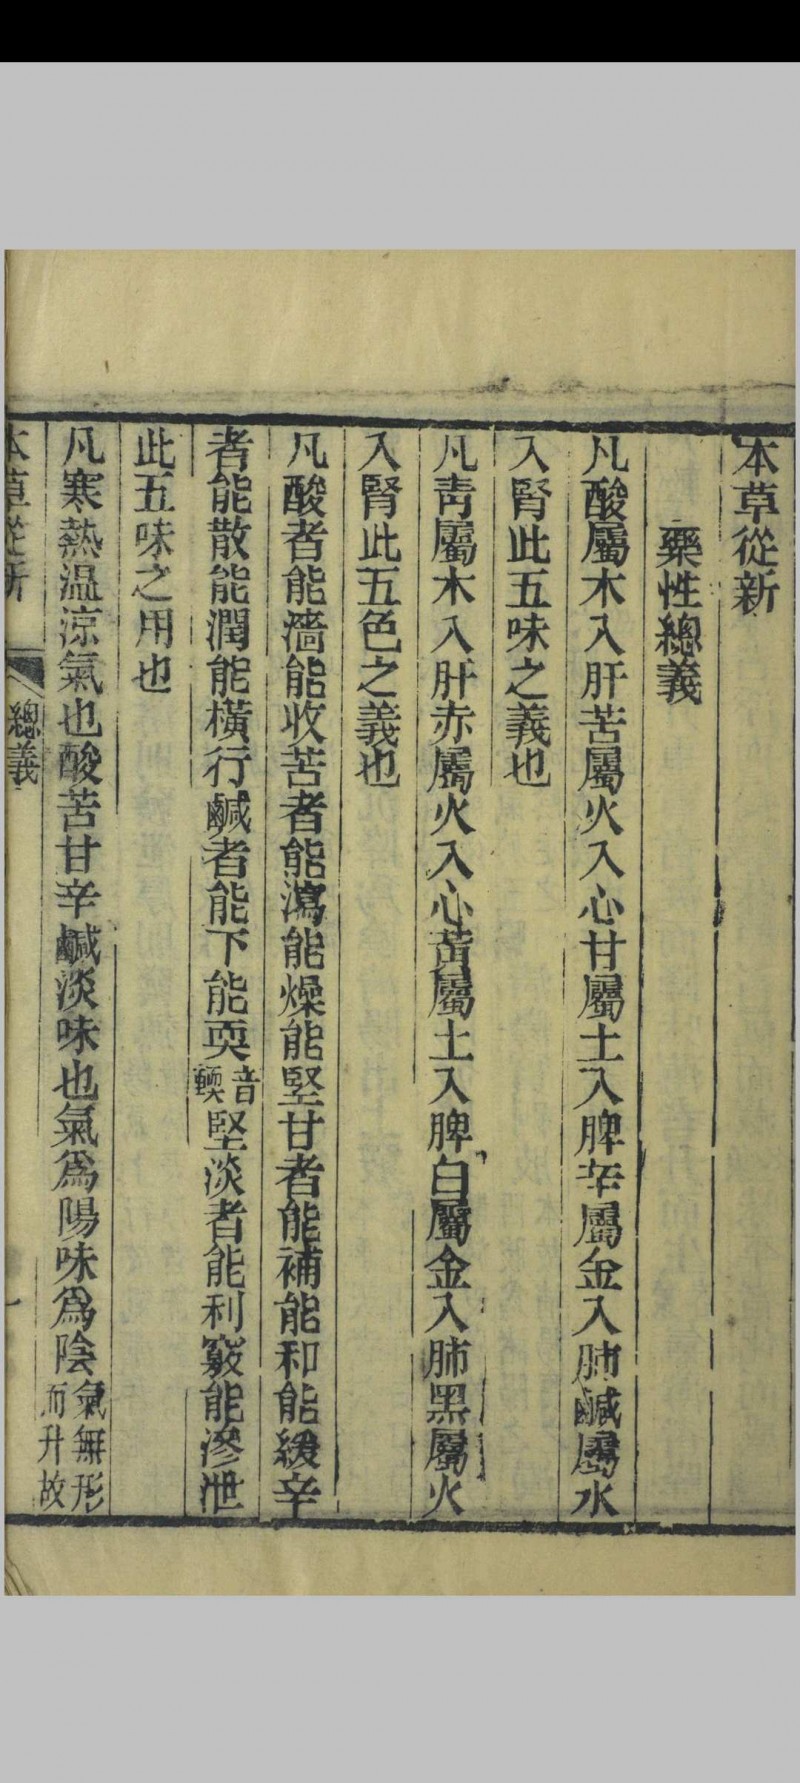 本草從新
藥性總義
凡酸屬木入肝苦屬火入心甘屬土入脾辛屬金入肺鹹屬水
入腎此五味之義也
凡靑屬木入肝赤屬火入心黃屬土入脾白屬金入肺黑屬火
入腎此五色之義也
凡酸者能濇能收苦者能瀉能燥能堅甘者能補能和能緩辛
者能散能潤能橫行鹹者能下能耎音輭堅淡者能利竅能滲泄
此五味之用也
凡寒熱温涼氣也酸苦甘辛鹹淡味也氣爲陽味爲陰氣無形而升故
本草從新 總義 一